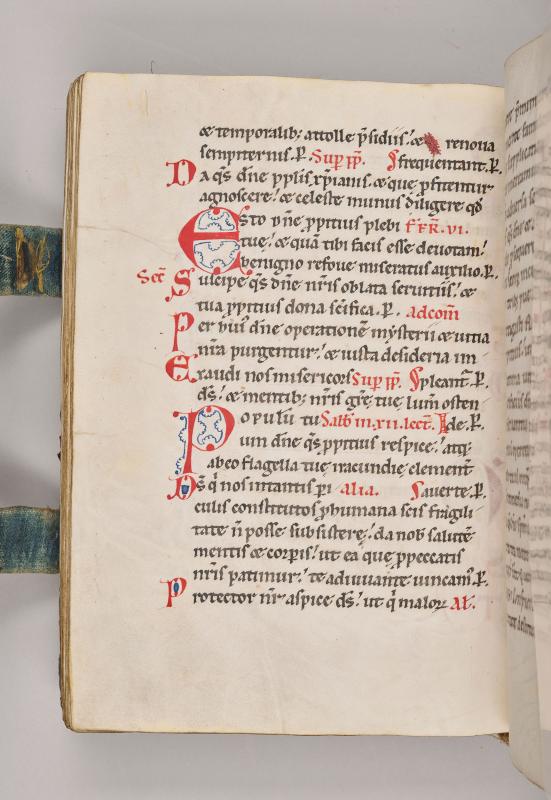 & temporalib; attolle p̄sidiis! & renoua
sempiternis. P. Sup ꝑꝑ. frequentant. P.
Da qs̄ dn̄e ꝓplis xp̄ianis. & que ꝓfitentur
agnoscere! & celeste munus diligere qd̄
Esto dn̄e ꝓpitius plebi FR. VI.
tue! & quā tibi facis esse deuotam!
benigno refoue miseratus auxilio. P.
Sec̄ Suscipe qs̄ dn̄e nr̄is oblata seruitiis! &
tua ꝓpitius dona sc̄ifica. P. ad com̄
Per huī dn̄e operationē mysterii & uitia
nr̄a purgentur! & iusta desideria im
Exaudi nos misericors Sup ꝑꝑ. pleant̄. P.
ds̄! & mentib; nr̄is grē tue lum̄ osten
Populū tu Sabb̄ in. XII. lect̄. de. P.
um dn̄e qs̄ ꝓpitius respice! atq;
ab eo flagella tue iracundie clement̄
Ds̄ q̄ nos in tantis ꝑi alia. auerte. P.
culis constitutos ꝓ humana scis fragili
tate n̄ posse subsistere! da nob̄ salutē
mentis & corꝑis! ut ea que ꝓ peccatis
nr̄is patimur! te adiuuante uincam̄. P.
Protector nr̄ aspice ds̄! ut q̄ maloꝝ Al̄.